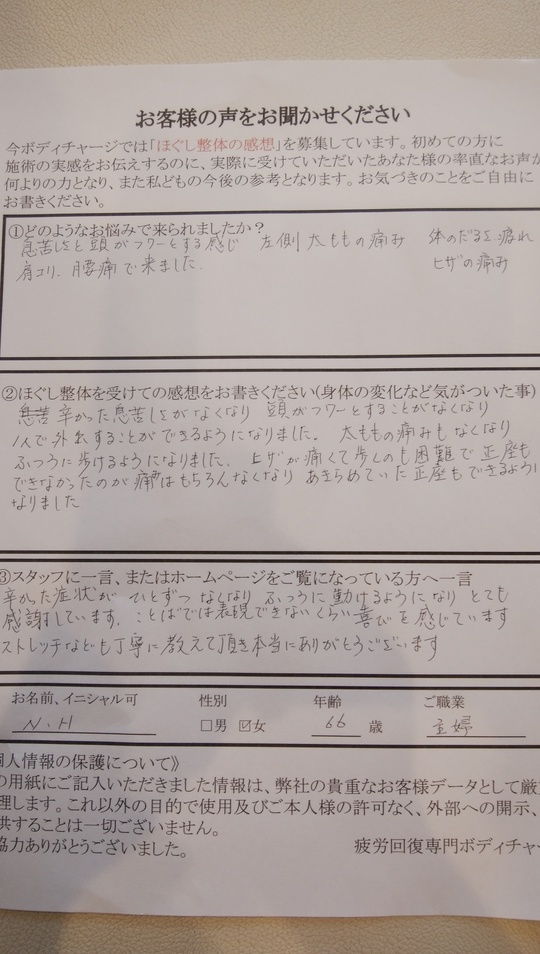 お客様の声をお聞かせください
今ボディチャージでは「ほぐし整体の感想」を募集しています。初めての方に
施術の実感をお伝えするのに、実際に受けていただいたあなた様の率直なお声が
何よりの力となり、また私どもの今後の参考となります。お気づきのことをご自由に
お書きください。
①どのようなお悩みで来られましたか？
息苦しさと頭がフワーとする感じ 左側太ももの痛み 体のだるさ、疲れ
肩コリ、腰痛で来ました。 ヒザの痛み
②ほぐし整体を受けての感想をお書きください(身体の変化など気がついた事)
辛かった息苦しさがなくなり 頭がフワーとすることがなくなり
1人で外出することができるようになりました。 太ももの痛みもなくなり
ふつうに歩けるようになりました。 ヒザが痛くて歩くのも困難で正座も
できなかったのが痛みはもちろんなくなり あきらめていた正座もできるように
なりました
③スタッフに一言、またはホームページをご覧になっている方へ一言
辛かった症状がひとずつなくなり ふつうに動けるようになり とても
感謝しています。ことばでは表現できないくらい喜びを感じています
ストレッチなども丁寧に教えて頂き本当にありがとうございます
お名前、イニシャル可 性別 年齢 ご職業
N・H □男 ☑女 66 歳 主婦
個人情報の保護について》
の用紙にご記入いただきました情報は、弊社の貴重なお客様データとして厳
理します。これ以外の目的で使用及びご本人様の許可なく、外部への開示、
供することは一切ございません。
協力ありがとうございました。 疲労回復専門ボディチャー